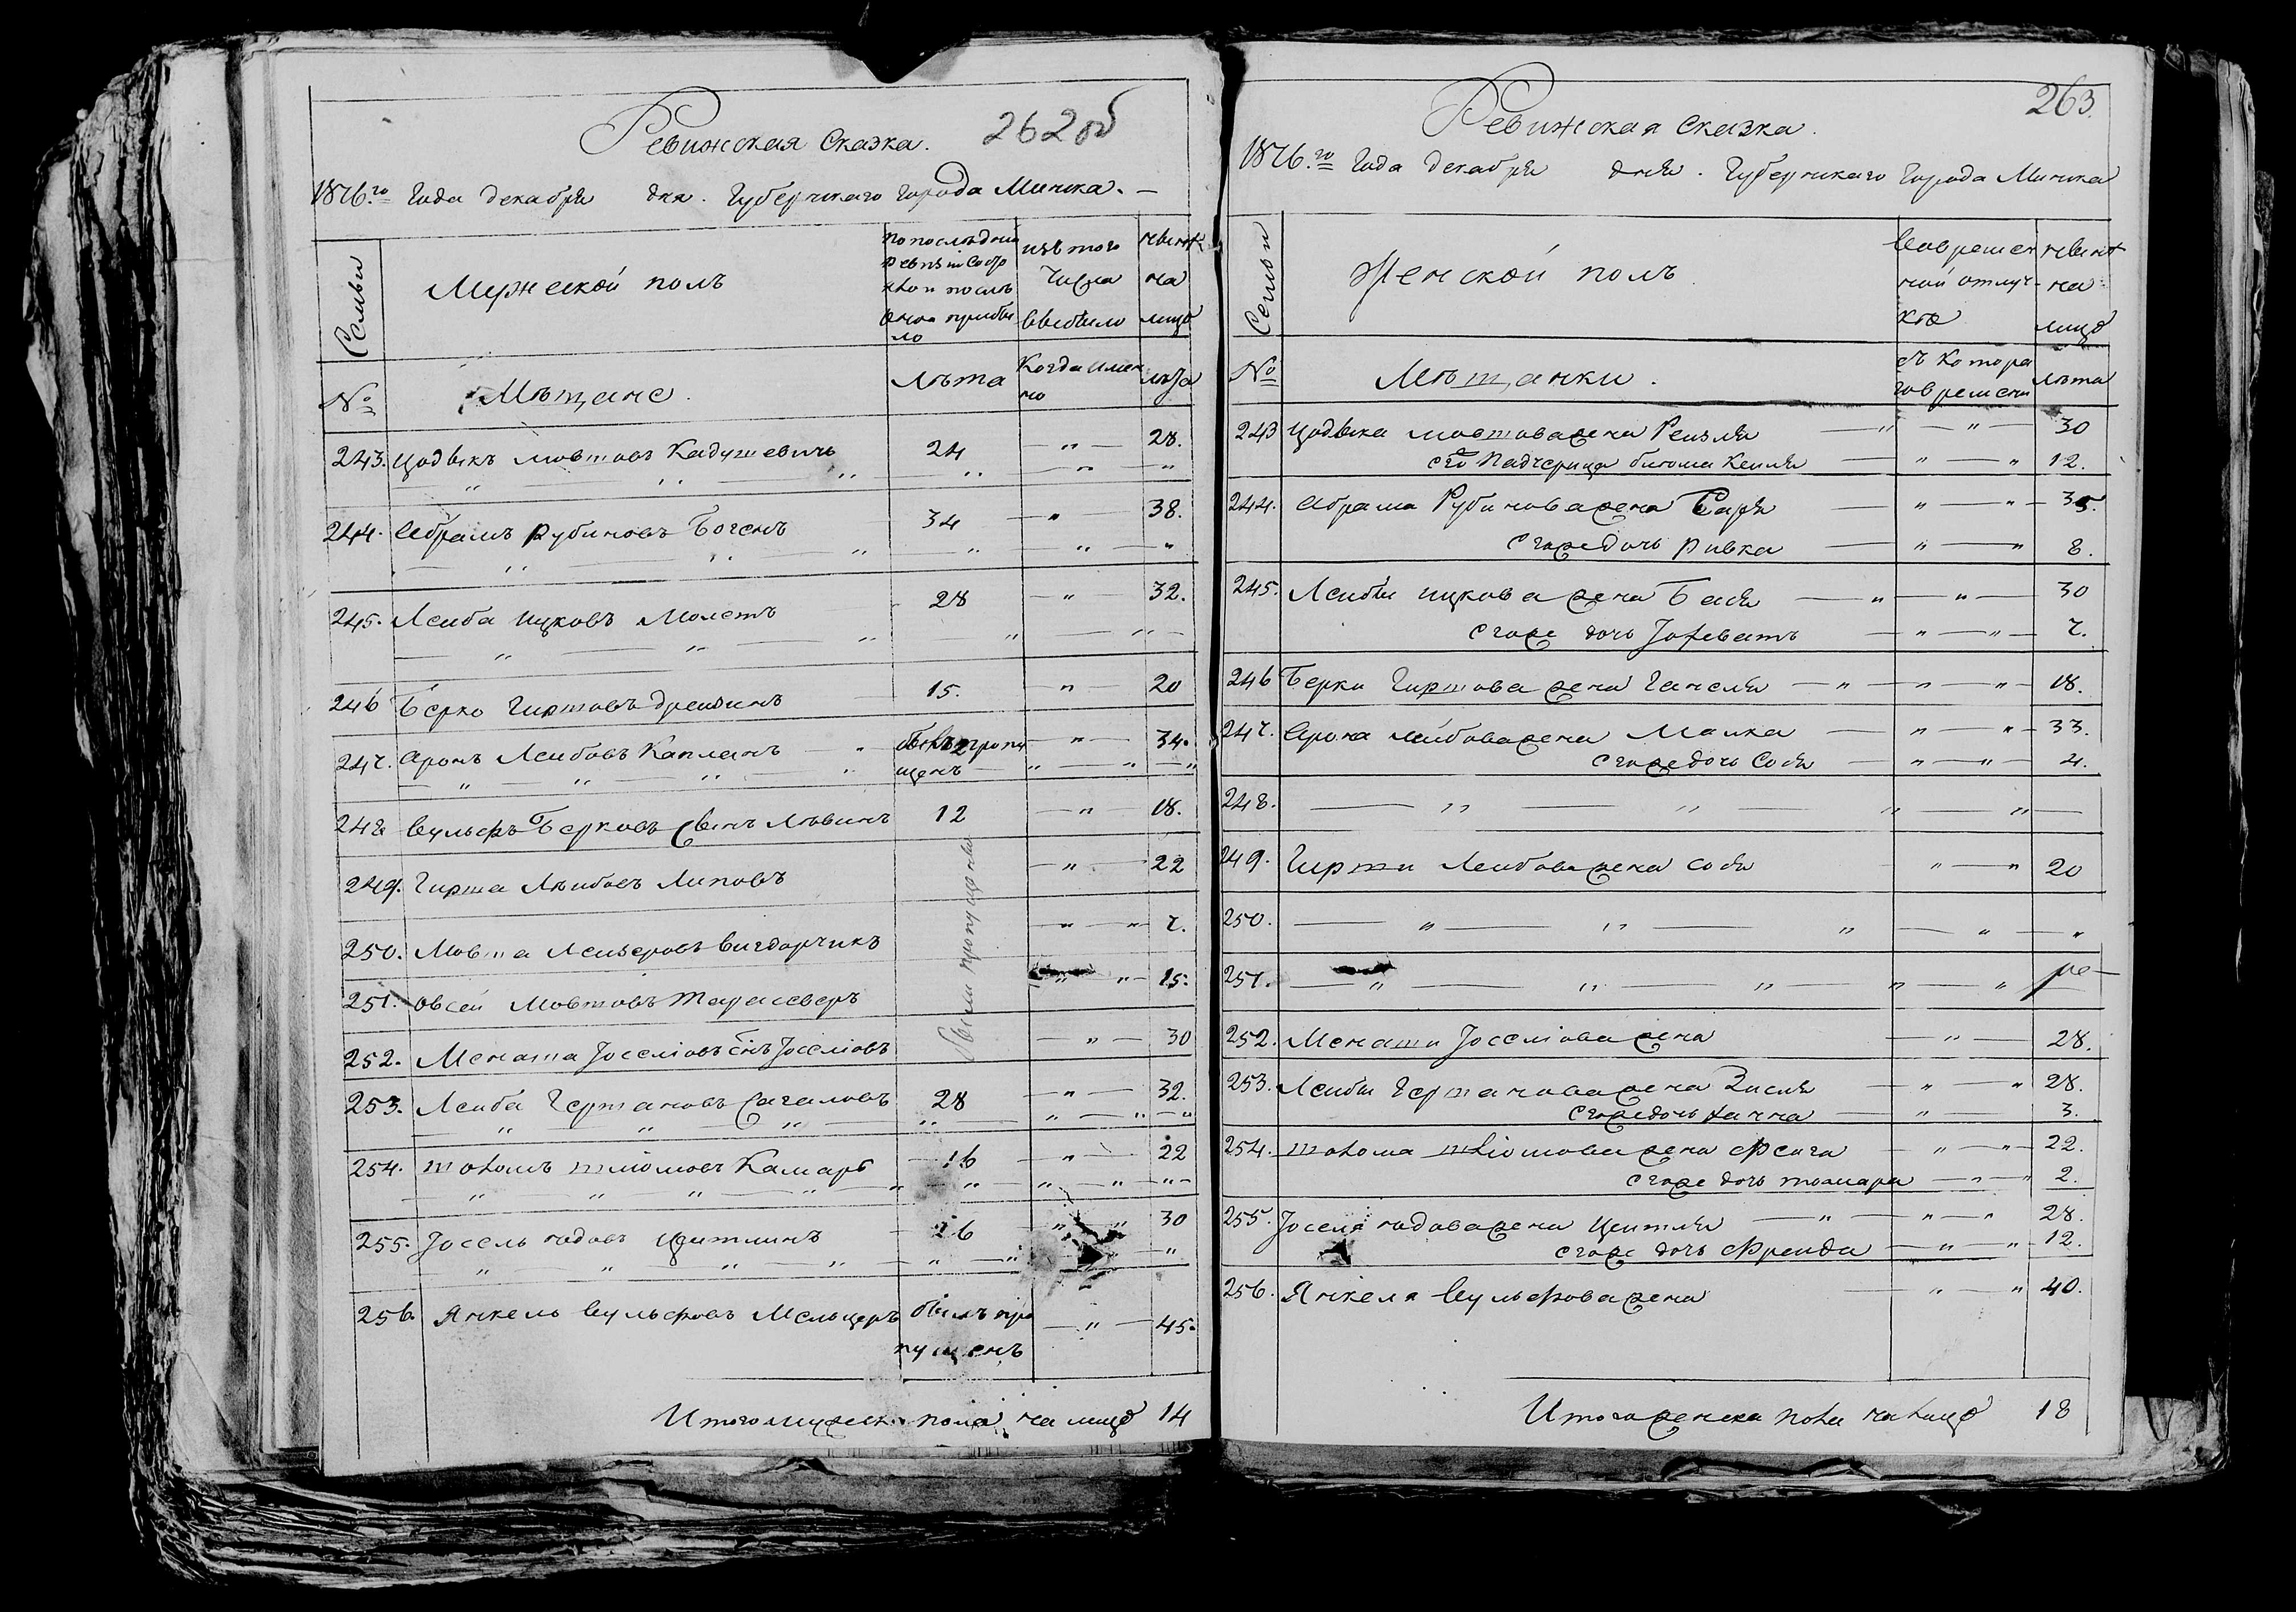 Ревижская сказка. 262об
1816.го Года декабря дня. Губернскаго города Минска. —
Семьи
Мужеской полъ
по последней ревизіи состояло и после оной прибыло
изъ того числа выбыло
ныне на лицо
№
Мѣщане.
Лѣта
Когда именно
лѣта
243. Цодыкъ Мовшовъ Кадушевичъ 24 " 28.
244. Абрамъ Рубиновъ Богенъ 34 " 38.
245. Леиба Ицковъ Молетъ 28 " 32.
246 Берко Гиршовъ Дреизинъ 15. " 20
247. Аронъ Леибовъ Капланъ " былъ пропущенъ " 34.
248 Вульфъ Берковъ сынъ Лѣвинъ 12 " 18.
249. Гирша Лѣибовъ Липовъ " 22
были пропущены
250. Мовша Леизеровъ Вигдорчикъ " " 7.
251. Овсеи Мовшовъ " " 15.
252. Менаша Іоселіовъ сынъ Іоселіовъ " 30
253. Леиба Гершановъ Сагаловъ 28 " 32.
254. Шоломъ Шліомовъ Камаръ 16 " 22
255. Іосель Цеитлинъ 26 " " 30
256. Янкель Вульфовъ Мельцеръ былъ пропущенъ " 45.
Итого мужеск. пола на лицо 14
263.
Ревижская сказка.
1816.го Года декабря дня. Губернскаго города Минска
Семьи
Женской полъ
Во временной отлучке
ныне на лицо
№
Мѣщанки.
съ которого времени
лѣта
243 Цодыка Мовшова жена Реизля " " 30
его падчерица 12.
244. Абрама Рубинова жена Саря " " 35.
егоже дочь Ривка " " 8.
245. Леибы Ицкова жена Бася " " 30
егоже дочь " " 7.
246 Берки Гиршова жена Ганеля " " " 18.
247. Арона Леибова жена Малка " " 33.
егоже дочь Собя " " 4.
248. " " " "
249. Гирши Леибова жена Собя " " 20
250. " " " " "
251. " " " " "
252. Менаши Іоселіова жена " 28.
253. Леибы Гершанова жена Зисля " " 28.
егоже дочь Ханна " 3.
254. Шолома Шліомова жена Феига " " 22.
егоже дочь " " 2.
255. Іоселя жена Цеитля " " " 28.
егоже дочь Фреида " " 12.
256. Янкеля Вульфова жена " " 40.
Итого женска пола на лицо 18